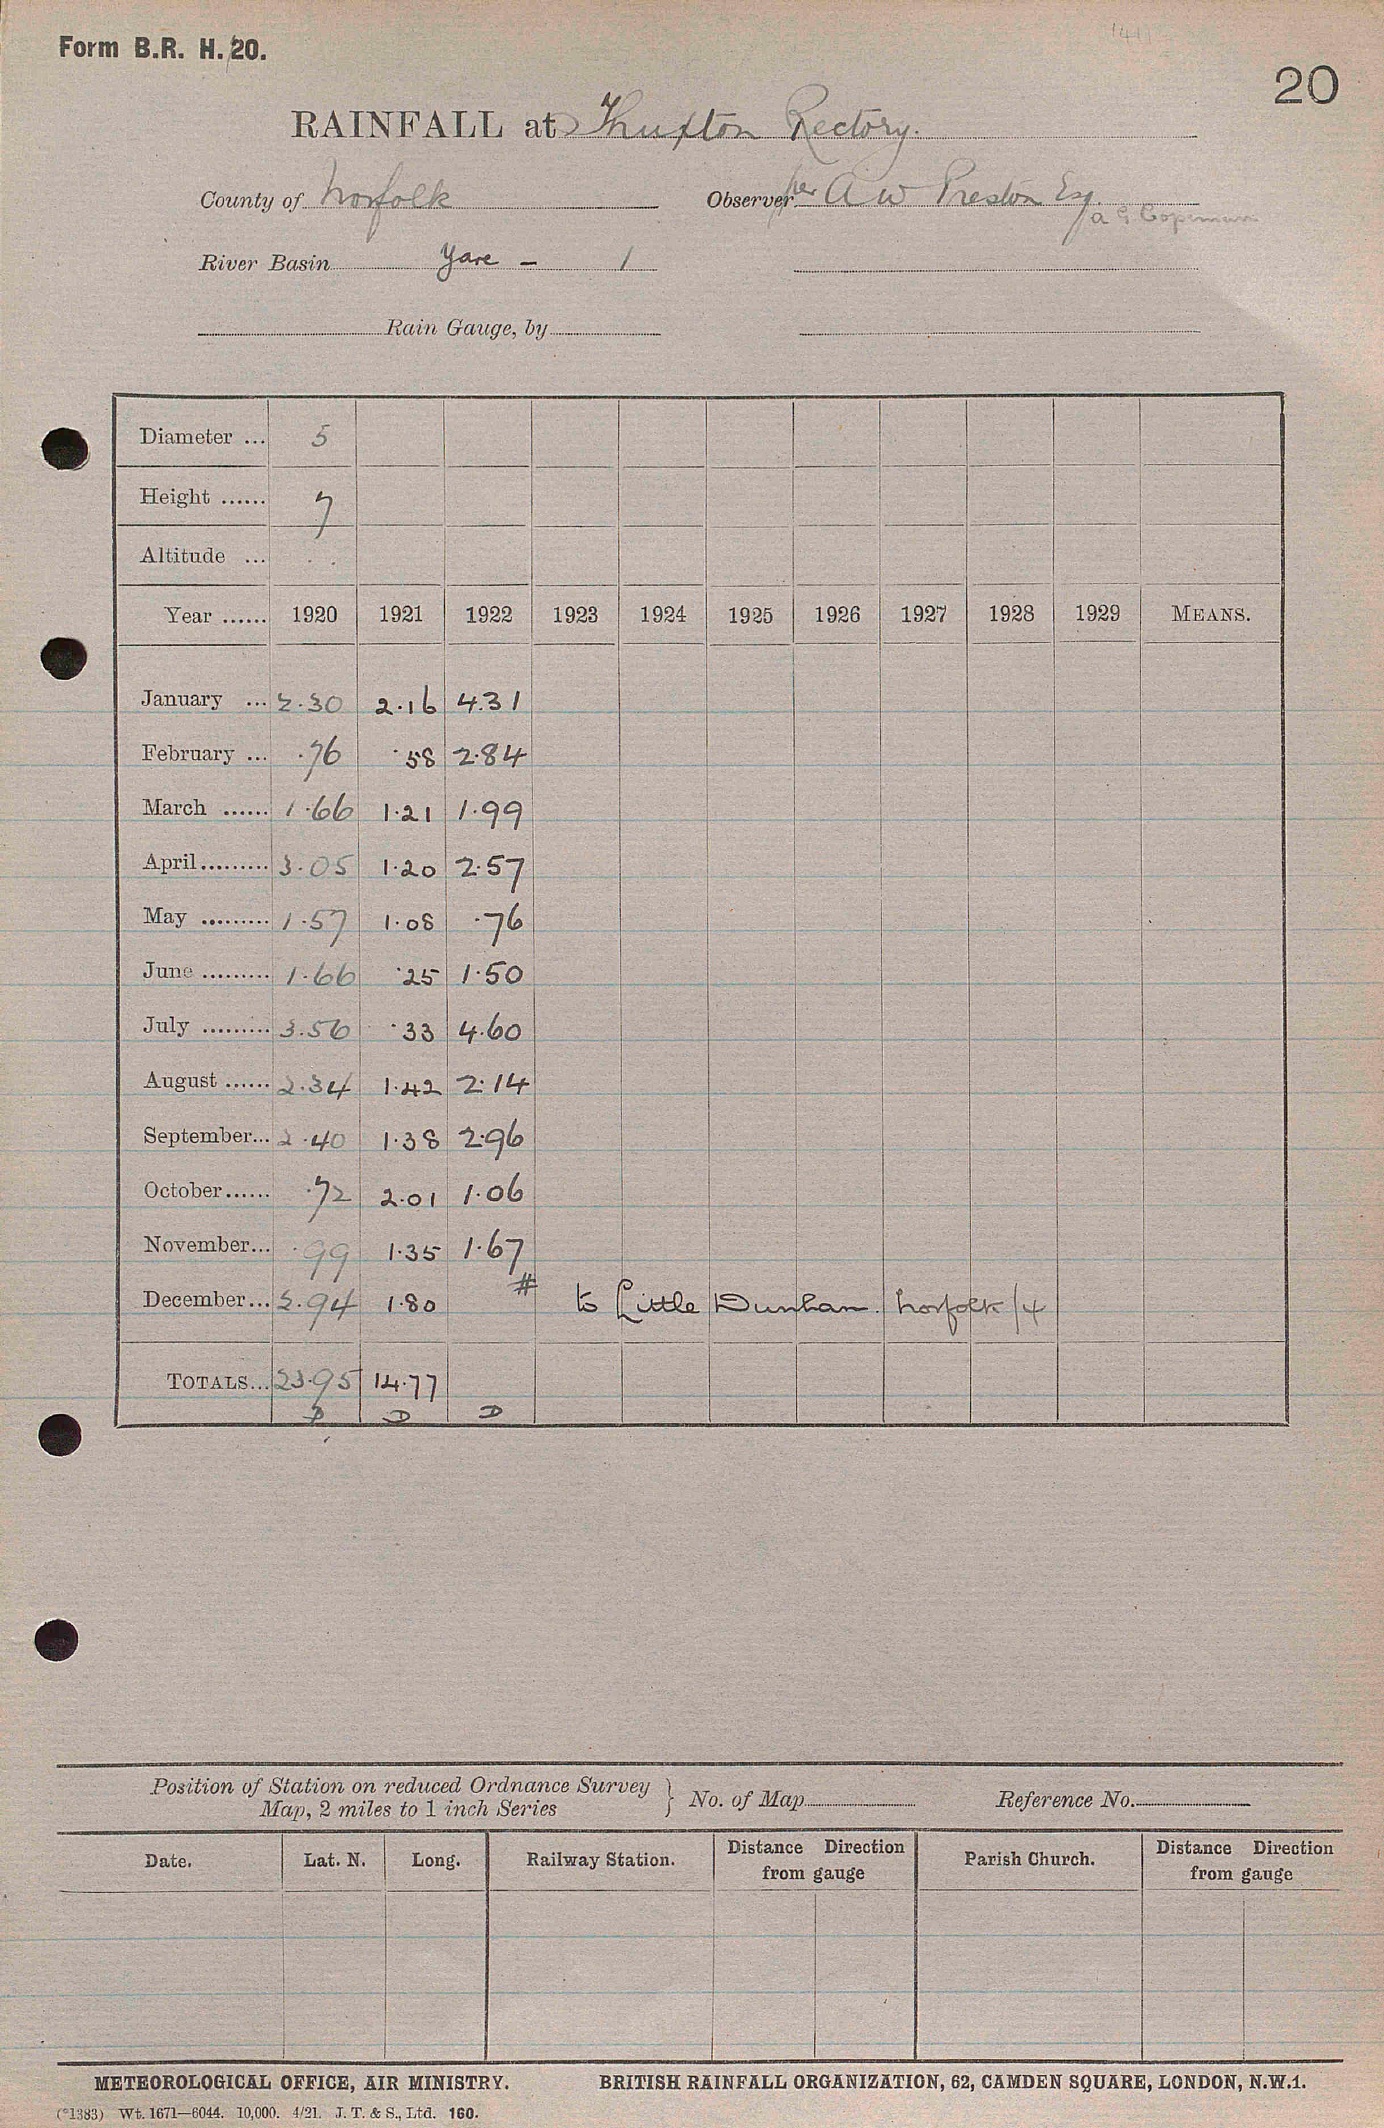 Form B.R. H. 20.
20
RAINFALL at Thuxton Rectory.
County of Norfolk Observer per A W Preston Esq.
a G Copeman
River Basin Yare – 1
Rain Gauge, by
Diameter ... 5
Height ...... 7
Altitude ... . .
Year ...... 1920 1921 1922 1923 1924 1925 1926 1927 1928 1929 MEANS.
January ... 2.30 2.16 4.31
February ... .76 .58 2.84
March ...... 1.66 1.21 1.99
April ......... 3.05 1.20 2.57
May ......... 1.57 1.08 .76
June ......... 1.66 .25 1.50
July ......... 3.56 .33 4.60
August ...... 2.34 1.42 2.14
September... 2.40 1.38 2.96
October...... .72 2.01 1.06
November... .99 1.35 1.67
December... 2.94 1.80 # to Little Dunham. Norfolk /4
TOTALS... 23.95 14.77
D D D
Position of Station on reduced Ordnance Survey
Map, 2 miles to 1 inch Series } No. of Map Reference No.
Date. Lat. N. Long. Railway Station. Distance Direction from gauge Parish Church. Distance Direction from gauge
METEOROLOGICAL OFFICE, AIR MINISTRY. BRITISH RAINFALL ORGANIZATION, 62, CAMDEN SQUARE, LONDON, N.W.1.
(*1383) Wt. 1671—6044. 10,000. 4/21. J. T. & S., Ltd. 160.